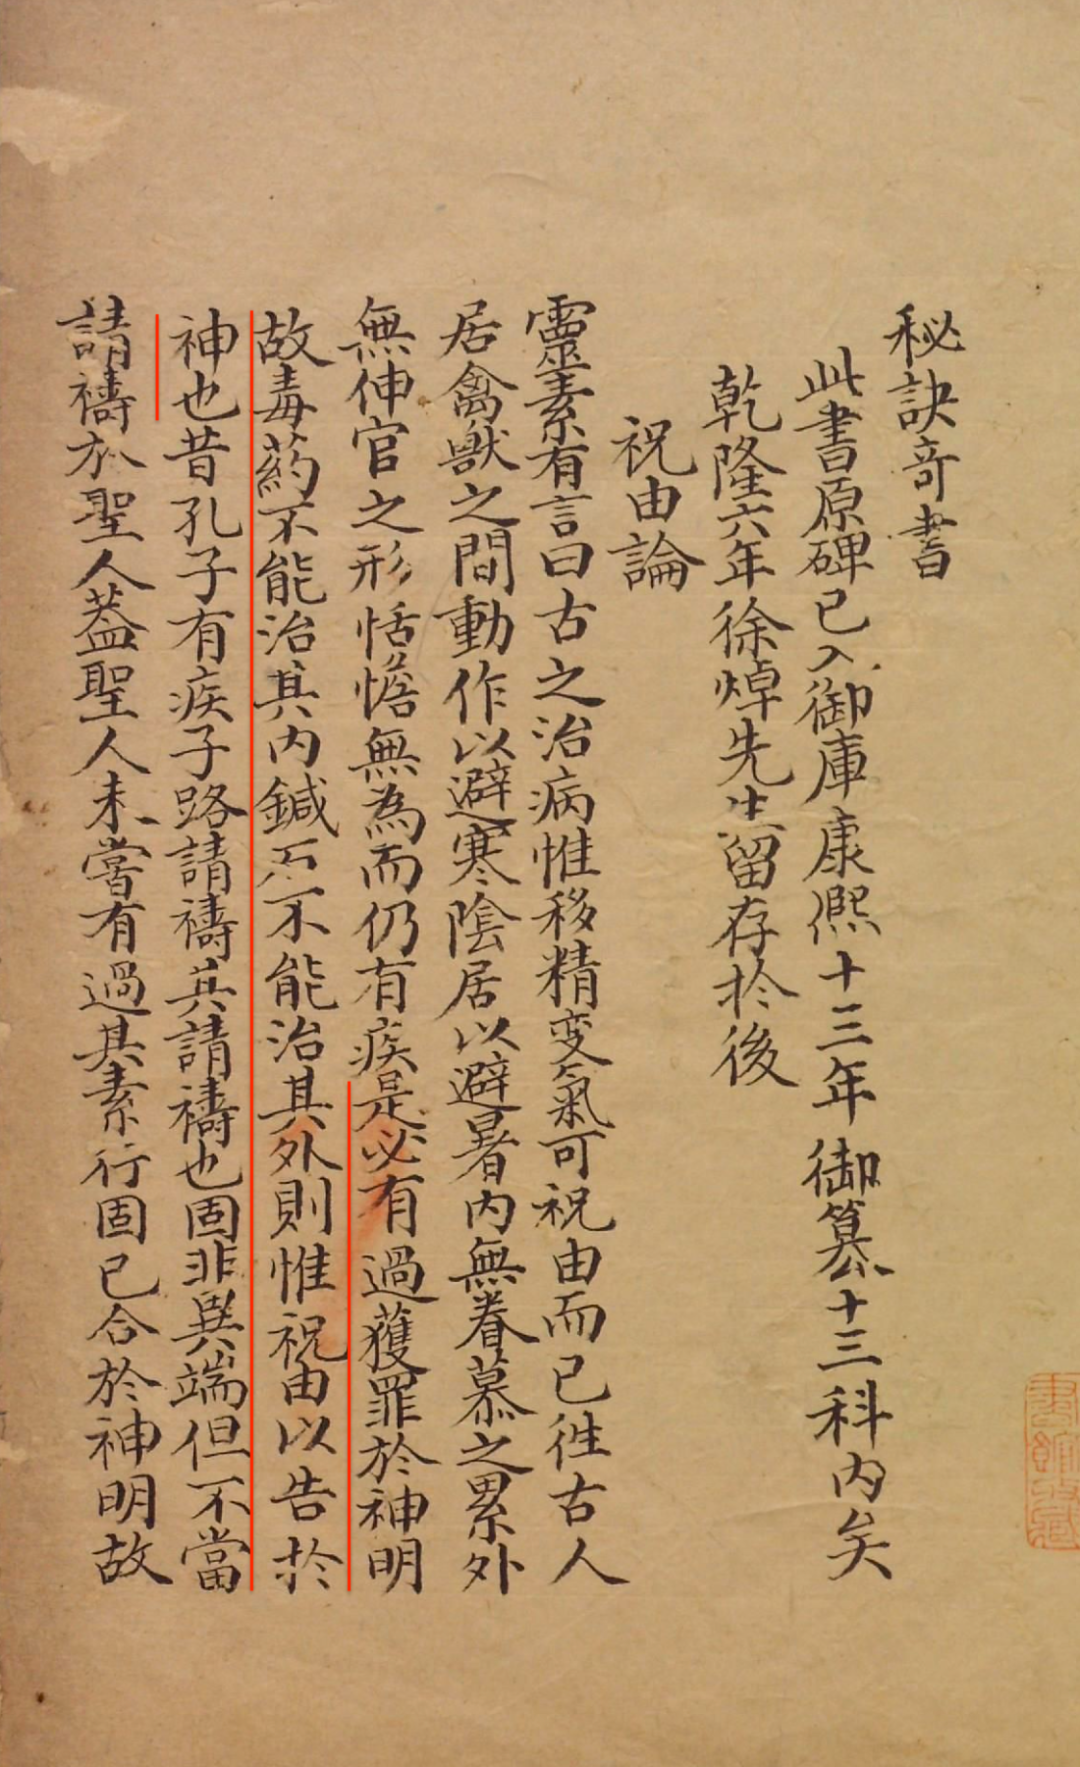 秘訣奇書
此書原碑已入御庫康熙十三年御篡十三科內矣
乾隆六年徐焯先生留存扵後
祝由論
靈素有言曰古之治病惟移精变氣可祝由而已徃古人
居禽獸之間動作以避寒陰居以避暑内無眷慕之累外
無伸官之形恬憺無為而仍有疾是必有過獲罪於神明
故毒药不能治其内鍼石不能治其外則惟祝由以告扵
神也昔孔子有疾子路請禱其請禱也固非異端但不當
請禱於聖人蓋聖人未嘗有過其素行固已合於神明故
書館藏